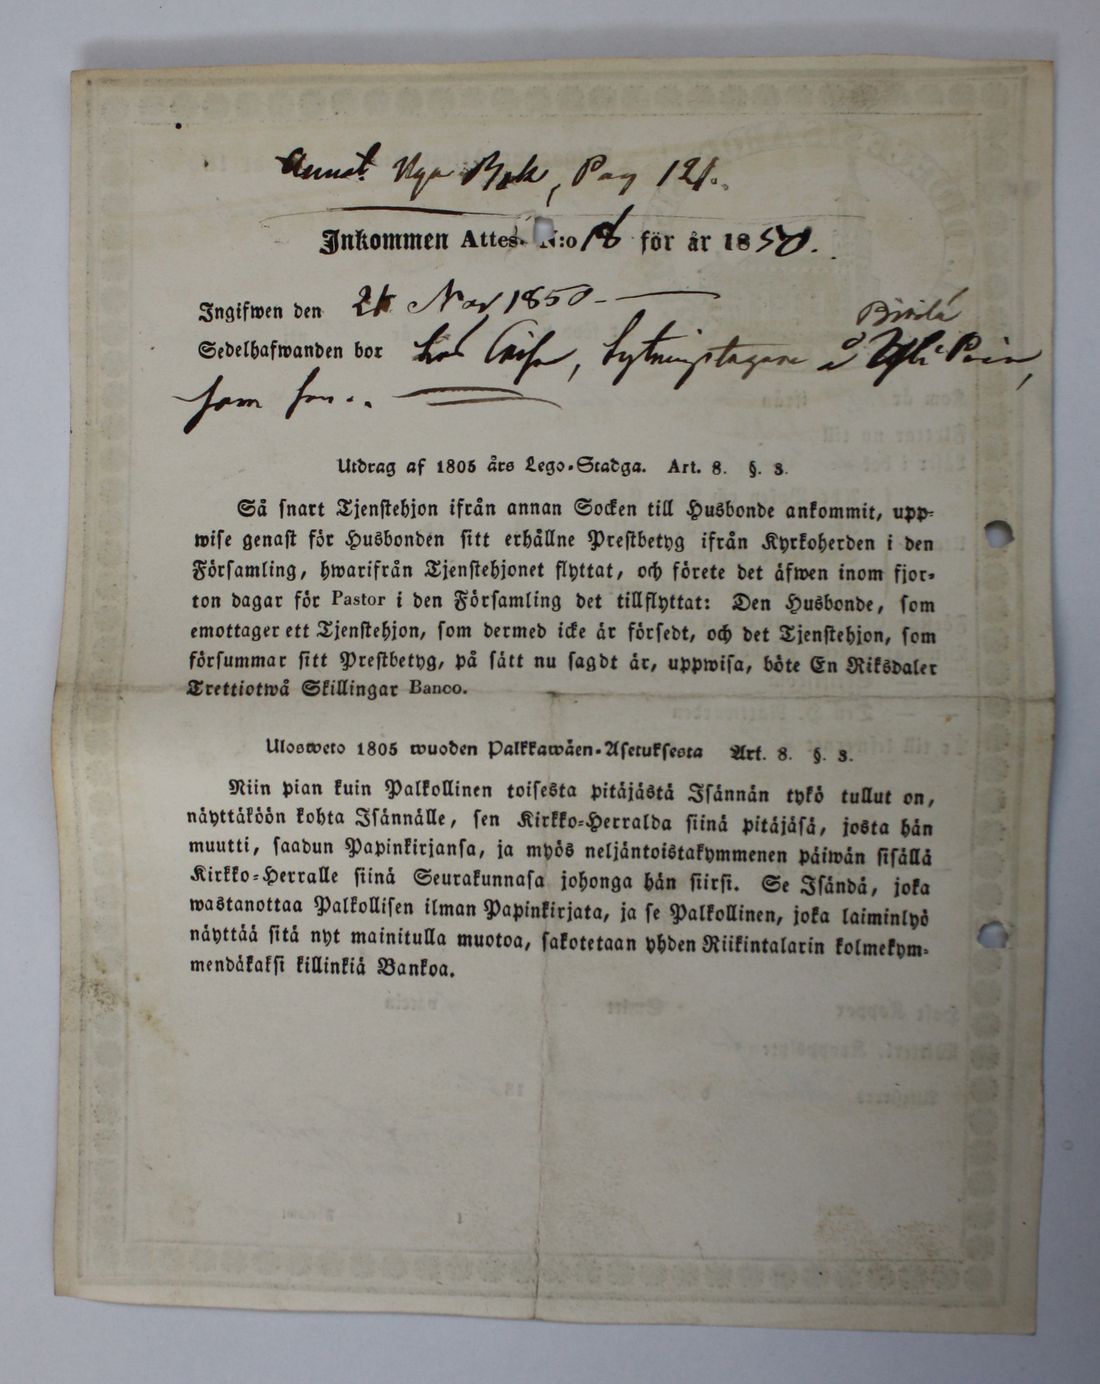 Annot. Nya Bok, Pag 121.
Inkommen Attest N:o 18 för år 1850.
Ingifwen den 21 Nov 1850
Sedelhafwanden bor hos
som
Utdrag af 1805 års Lego-Stadga. Art. 8. §. 3.
Så snart Tjenstehjon ifrån annan Socken till Husbonde ankommit, upp-
wise genast för Husbonden sitt erhållne Prestbetyg ifrån Kyrkoherden i den
Församling, hwarifrån Tjenstehjonet flyttat, och förete det äfwen inom fjor-
ton dagar för Pastor i den Församling det tillflyttat: Den Husbonde, som
emottager ett Tjenstehjon, som dermed icke är försedt, och det Tjenstehjon, som
försummar sitt Prestbetyg, på sätt nu sagdt är, uppwisa, böte En Riksdaler
Trettiotwå Skillingar Banco.
Ulosweto 1805 wuoden Palkkawäen-Asetuksesta Art. 8. §. 3.
Niin pian kuin Palkollinen toisesta pitäjästä Isännän tykö tullut on,
näyttäköön kohta Isännälle, sen Kirkko-Herralda siinä pitäjäsä, josta hän
muutti, saadun Papinkirjansa, ja myös neljäntoistakymmenen päiwän sisällä
Kirkko-Herralle siinä Seurakunnasa johonga hän siirsi. Se Isändä, joka
wastanottaa Palkollisen ilman Papinkirjata, ja se Palkollinen, joka laiminlyö
näyttää sitä nyt mainitulla muotoa, sakotetaan yhden Riikintalarin kolmekym-
mendäkaksi killinkiä Bankoa.